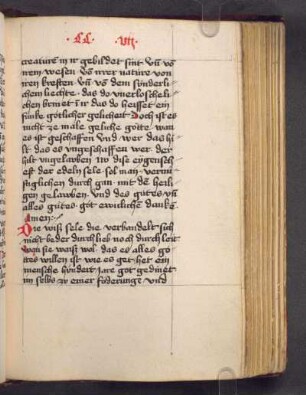 CC VII
creature in ir gebildet sint vn vō
irem wesen vn irer nature von
iren kreften vn vō dem sunderli
chem liechte das do vnerloscheli
chen brinet in ir das do heisset ein
funke götlicher gelicheit Doch ist es
nicht ze male geliche gotte wan
es ist geschaffen vnd wer das hi
lt das es vngeschaffen wer der
hilt vngelauben In dise eygensch
eft der edeln sele sol man vernu
nftiglichen durch gan mit der heili
gen gelaubes vnd des gutes vn
alles gutes got ewicliche danke
Amen
Die wisi sele die verhandelt sich
nicht beder durch lieb noch durch leit
Wan sie weist wol das es alles go
ttes willen ist wie es get het ein
mensche hundert jare got gedinet
im selbs zu einer fuderunge vnd